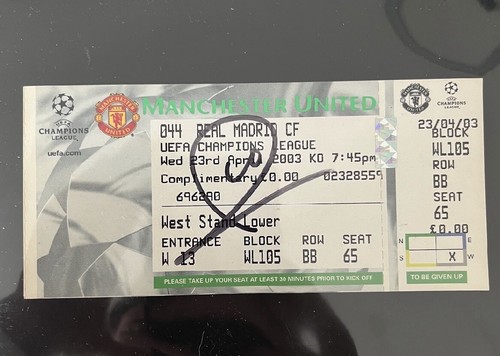 CHAMPIONS
LEAGUE
uefa.com
MANCHESTER UNITED
CHAMPIONS
LEAGUE
044 REAL MADRID CF
UEFA CHAMPIONS LEAGUE
Wed 23rd April 2003 KO 7:45pm
Complimentary £0.00 02328559
696290
West Stand Lower
ENTRANCE BLOCK ROW SEAT
W 13 WL105 BB 65
PLEASE TAKE UP YOUR SEAT AT LEAST 30 MINUTES PRIOR TO KICK OFF
23/04/03
BLOCK
WL105
ROW
BB
SEAT
65
£0.00
N E
S X W
TO BE GIVEN UP